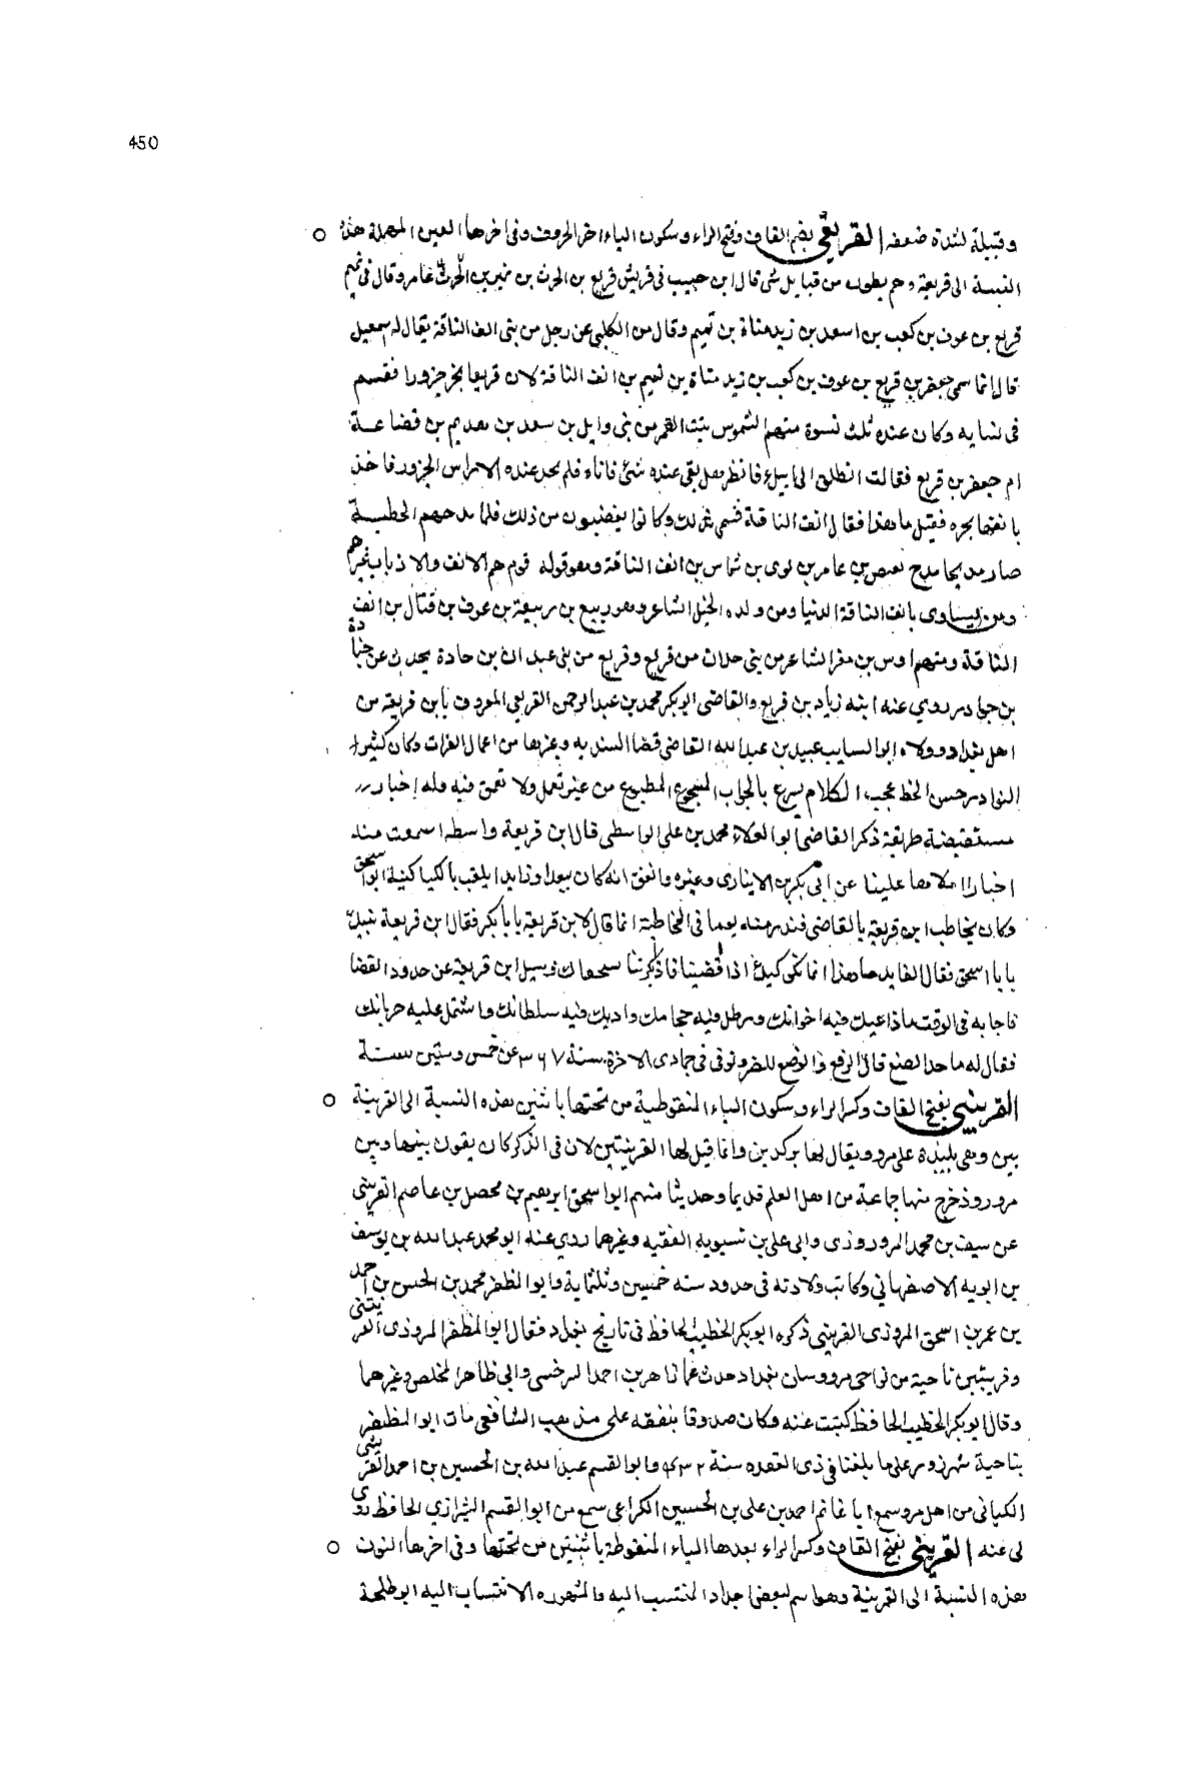 450
وقبيلة لندة ضعفه القريعي بضم القاف وفتح الراء وسكون الياء اخر الحروف وفي اخرها العين المهملة هذه
النسبة الى قريعة وهم بطون من قبايل شى قال ابن حبيب في قريش قريع بن الحرث بن نمير بن عامر وقال في تميم
قريع بن عوف بن كعب بن اسعد بن زيد مناة بن تميم وقال من الكلبي عن رجل من بنى انف الناقة يقال له سمعيل
قال انما سمى جعفر بن قريع بن عوف بن كعب بن زيد مناة بن تميم بن انف الناقة لان قريعا نحر جزورا فقسم
في نسايه وكان عنده ثلث نسوة منهم الشموس بنت القمر من بنى وايل بن سعد بن هديم بن قضاعة
ام جعفر بن قريع فقالت انطلق الى ابيك فانظر هل بقى عنده شئ فاتاه فلم يجد عنده الا راس الجزور فاخذ
بانفها يجره فقيل ما هذا فقال انف الناقة فسمى بذلك وكانوا يغضبون من ذلك فلما مدحهم الحطيئة
صار مدحا مدح بن عامر بن لوى بن شماس بن انف الناقة وهو قوله قوم هم الانف والاذناب غيرهم
ومن يساوى بانف الناقة الدنيا ومن ولده المخبل الشاعر وهو ربيع بن ربيعة بن عوف بن قتال بن انف
الناقة ومنهم اوس بن مغرا الشاعر من بنى حدان من قريع وقريع من بنى عبد الله بن حادة يحدث عن جنادة
بن جراد روي عنه ابنه زياد بن قريع والقاضى ابو بكر محمد بن عبد الرحمن القريعى المعروف بابن قريعة من
اهل بغداد وولاه ابو السايب عبيد بن عبد الله القاضى قضا السنديه وغيرها من اعمال الفرات وكان كثير
النوادر حسن الخط عجيب الكلام يسرع بالجواب المسجوع المطبوع من غير تعمل ولا تعمق فيه وله اخبار
مستفيضة طريفة ذكر القاضى ابو العلاء محمد بن على الواسطى قال ابن قريعة واسطه اسمعت منه
اخبارا املاها علينا عن ابى بكر بن الانبارى وغيره واتفق انه كان ببغداد قايد يلقب بالكيا كنيته ابو اسحق
وكان يخاطب ابن قريعة بالقاضى فندر منه يوما في المخاطبة انما قال لابن قريعة يا با بكر فقال ابن قريعة لبيك
يا با اسحق فقال القايد ما هذا انما نكى كيلا اذا قضيتنا فاذا بكرتنا سحقناك وسيل ابن قريعة عن حدود القضا
فاجابه في الوقت ماذا عبك فيه اخوانك وبرطل فيه حجامك واديك فيه سلطانك واشتمل عليه جربانك
فقال له ما حد الصفع قال الرفع والوضع للضر وتوفى في جمادى الاخرة سنة ٣٦٧ عن خمس وستين سنة
القرينيى بفتح القاف وكسر الراء وسكون الياء المنقوطة من تحتها باثنين هذه النسبة الى القرينة
بين وهى بليدة على مرو ويقال لها بركدين وانما قيل لها القرينتين لان في الذكر كان يقرن بينها وبين
مرو روذ خرج منها جماعة من اهل العلم قديما وحديثا منهم ابو اسحق ابرهيم بن محصل بن عاصم القرينى
عن سيف بن محمد المروروذى وابى على بن شبويه الفقيه وغيرهما روي عنه ابو محمد عبد الله بن يوسف
بن ابويه الاصفهاني وكانت ولادته في حدود سنه خمسين وثلثماية وابو المظفر محمد بن الحسن بن احمد
بن عمر بن اسحق المروزى القرينى ذكره ابو بكر الخطيب الحافظ في تاريخ بغداد فقال ابو المظفر المروزى القرينتى
وقرينتين ناحية من نواحى مرو وسكن بغداد وحدث بها عن زاهر بن احمد السرخسى وابي طاهر المخلص وغيرهما
وقال ابو بكر الخطيب الحافظ كتبت عنه وكان صدوقا يتفقه على مذهب الشافعى مات ابو المظفر
بناحية شهرزور على ما بلغنا في ذى القعدة سنة ٤٣٢ وابو القسم عبد الله بن الحسين بن احمد القرينى
الكيانى من اهل مرو سمع ابا غانم احمد بن على بن الحسين الكراعى سمع من ابو القسم الشيرازي الحافظ روى
لى عنه القرينى بفتح القاف وكسر الراء بعدها الياء المنقوطة باثنتين من تحتها وفي اخرها النون
هذه النسبة الى القرينة وهو اسم لبعض اجداد المنتسب اليه والمشهور بهذه الانتساب اليه ابو طلحة